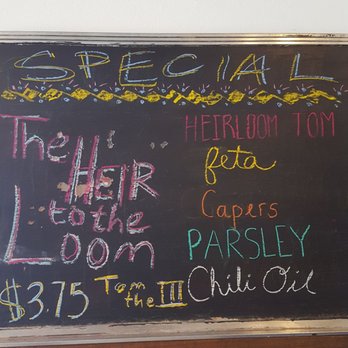 SPECIAL
The
HEIR
to the
Loom
$3.75
Tom
the III
HEIRLOOM TOM
feta
Capers
PARSLEY
Chili Oil